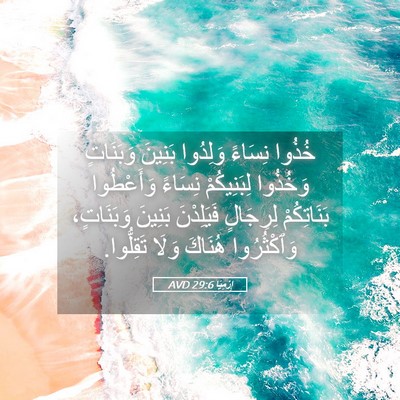 خُذُوا نِسَاءً وَلِدُوا بَنِينَ وَبَنَاتٍ
وَخُذُوا لِبَنِيكُمْ نِسَاءً وَأَعْطُوا
بَنَاتِكُمْ لِرِجَالٍ فَيَلِدْنَ بَنِينَ وَبَنَاتٍ،
وَٱكْثُرُوا هُنَاكَ وَلَا تَقِلُّوا.
إِرْمِيَا 29:6 AVD